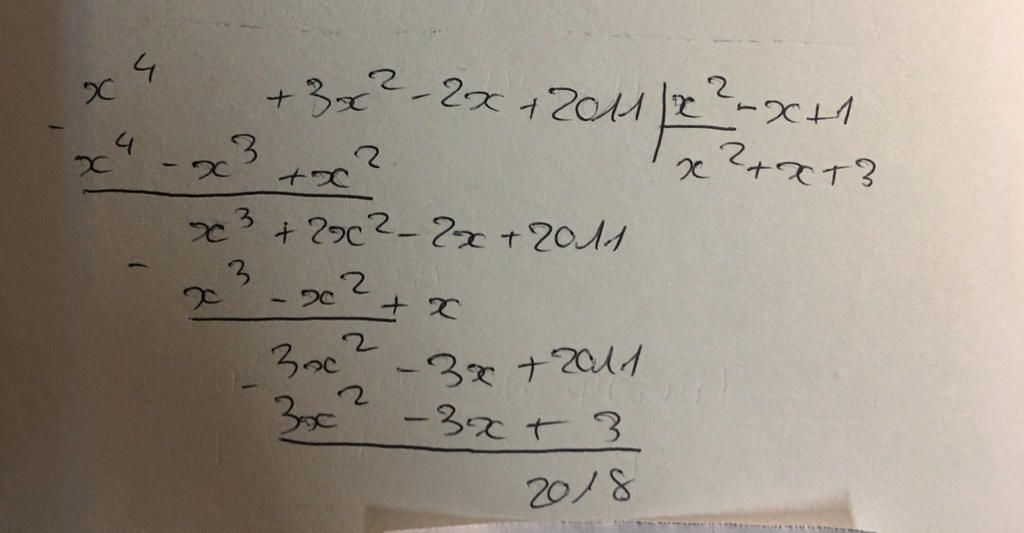 x⁴ + 3x² - 2x + 2011 | x² - x + 1
- x⁴ - x³ + x² x² + x + 3
x³ + 2x² - 2x + 2011
- x³ - x² + x
3x² - 3x + 2011
- 3x² - 3x + 3
2018